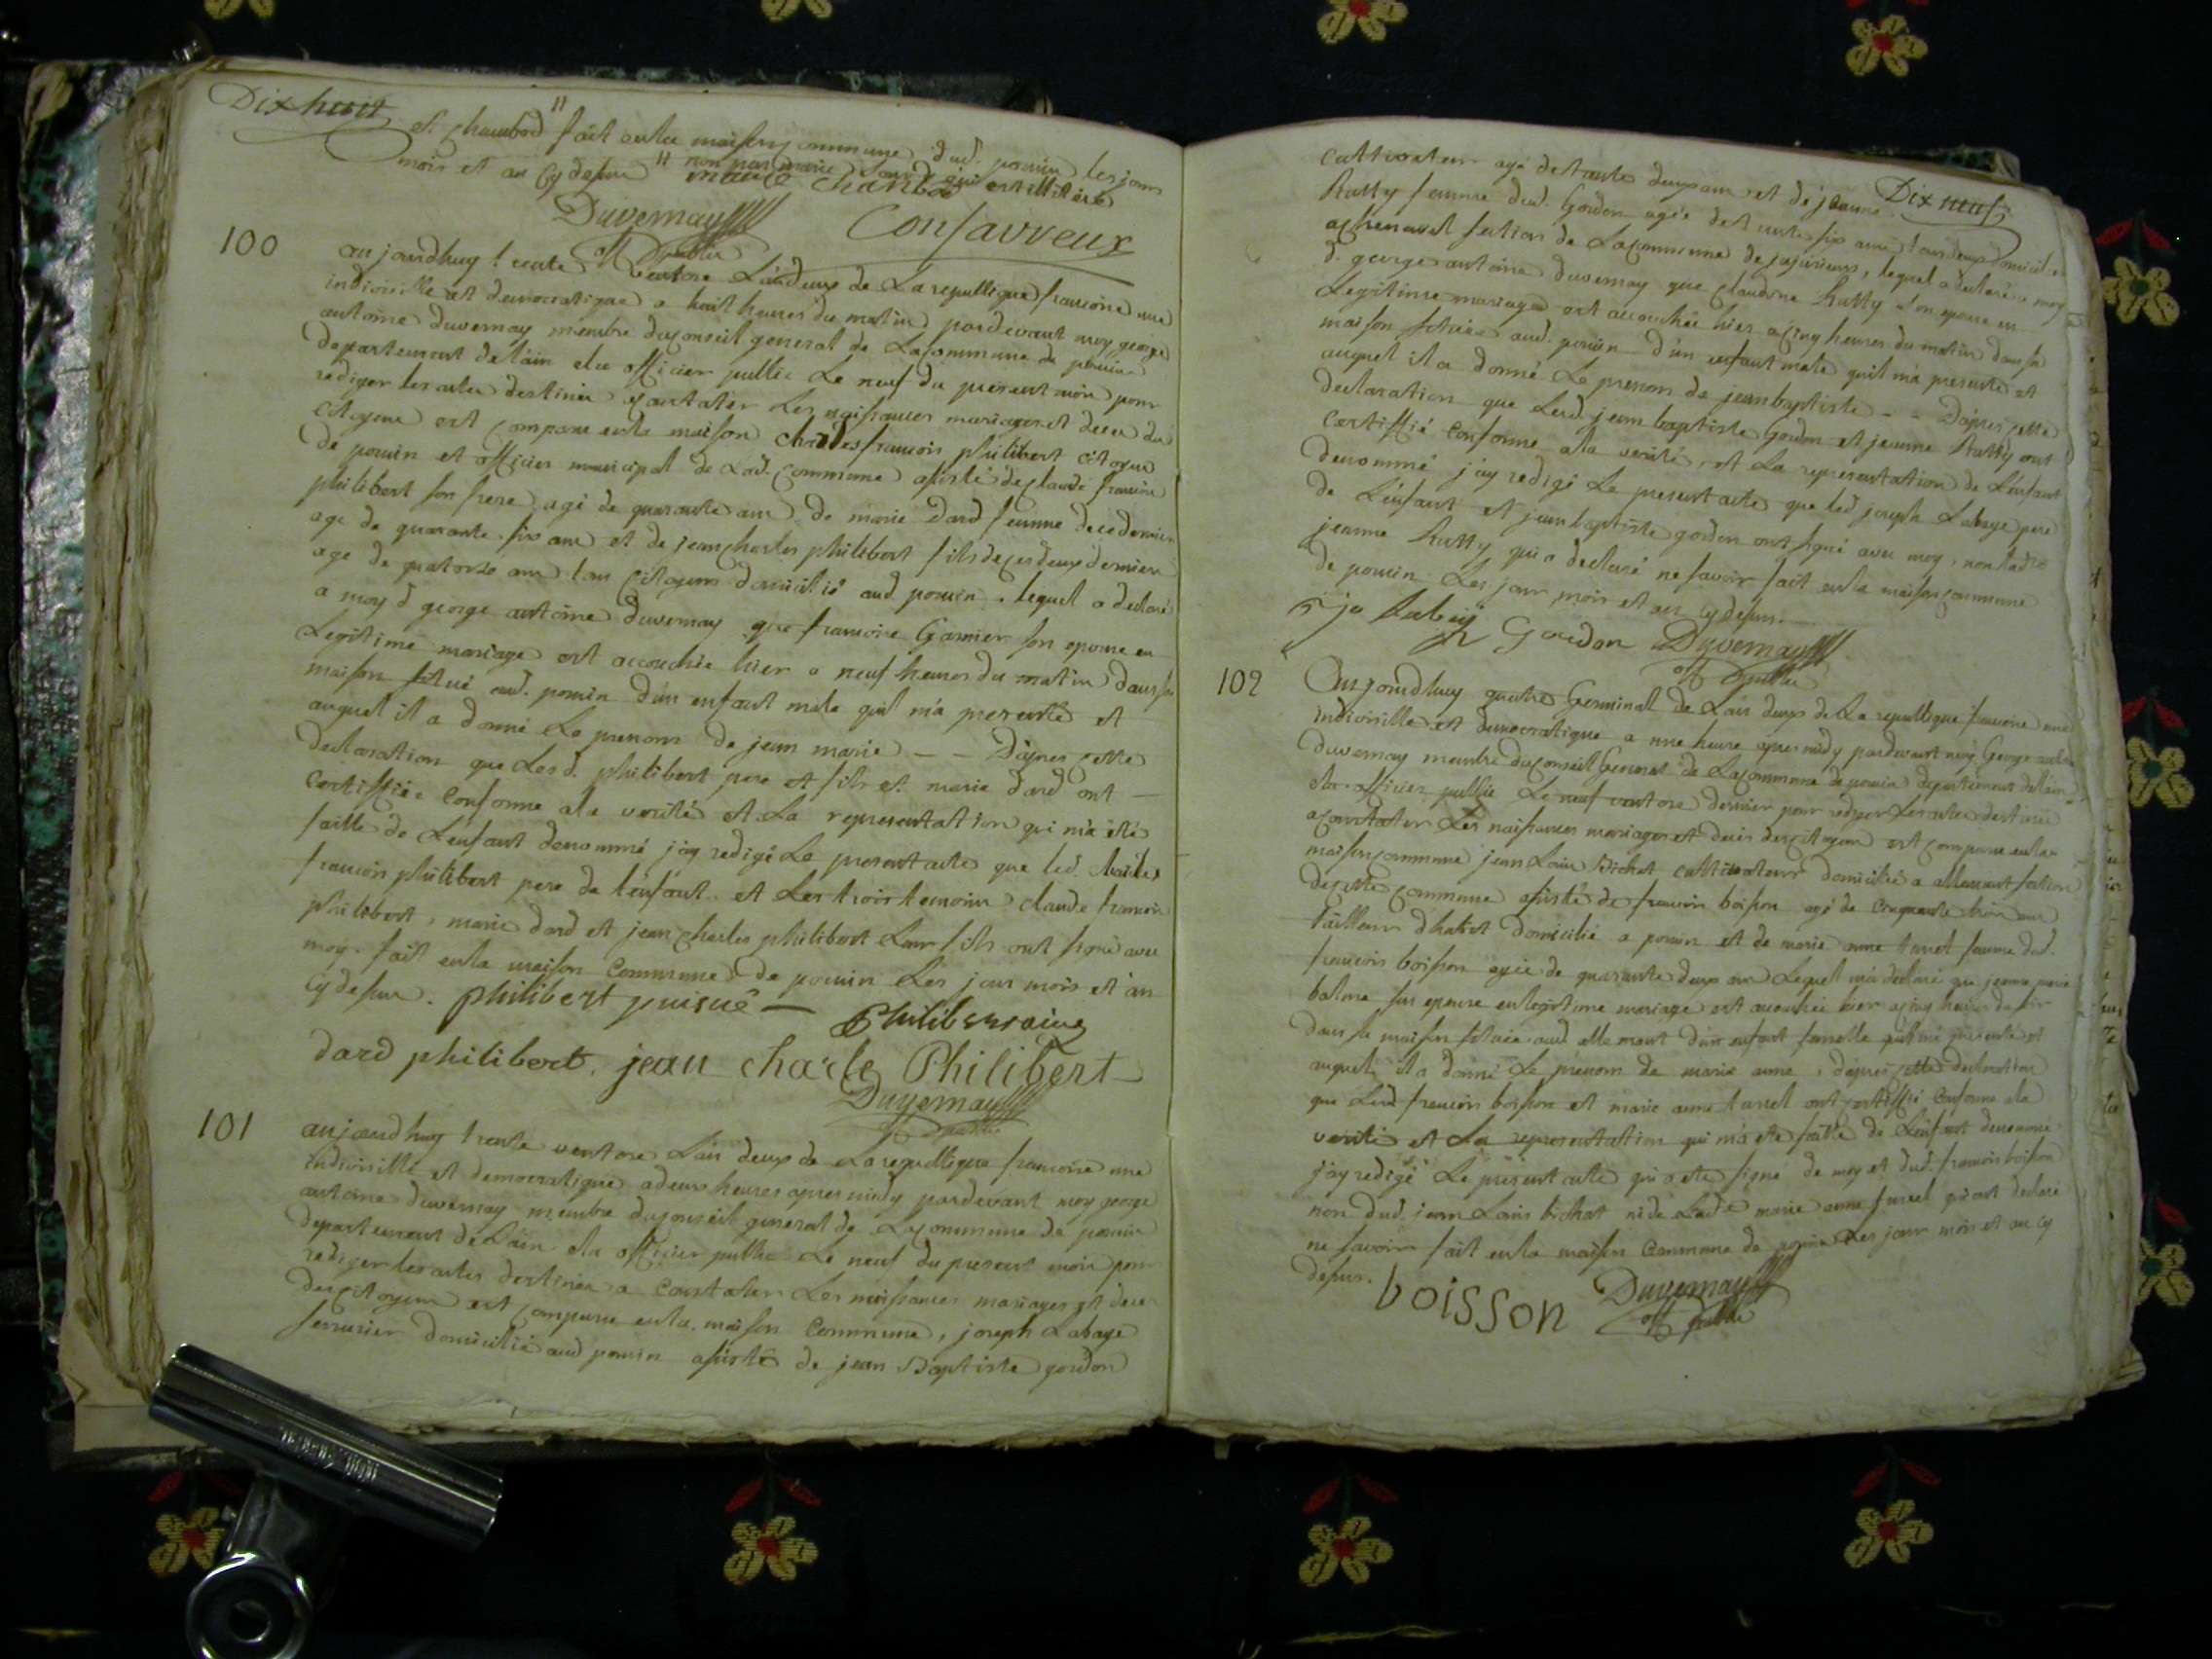 Dix huit
et chambard " fait en la maison commune dud. poncin les jours
mois et an cy dessus " non pas marie chambard qui est illitérée
Duvernay Confavreux
off public
100
aujourdhuy trente ventose L'an deux de La republique francoise une
indivisible et democratique a huit heures du matin pardevant moy george
antoine duvernay membre du conseil general de La commune de poncin
departement de l'ain elu officier public Le neuf du present mois pour
rediger les actes destinés a constater Les naissances mariages et deces des
citoyens est comparu en la maison charles francois philibert citoyen
de poncin et officier municipal de Lad. commune assisté de claude francois
philibert son frere agé de quarante ans de marie dard femme de ce dernier
age de quarante six ans et de jean charles philibert fils de ces deux derniers
age de quatorze ans tous citoyens domicilié aud poncin. lequel a declaré
a moy d. george antoine duvernay que francoise Garnier son epouse en
Legitime mariage est accouchée hier a neuf heures du matin dans sa
maison située aud. poncin d'un enfant male qu'il m'a presenté et
auquel il a donné Le prenom de jean marie - - D'apres cette
declaration que Lesd. philibert pere et fils et marie dard ont -
certiffiée Conforme a la verité et La representation qui m'a été
faitte de L'enfant denommé j'ay redigé Le present acte que led. charles
francois philibert pere de l'enfant et Les trois temoins claude francois
philibert, marie dard et jean charles philibert Leur fils ont signé avec
moy. fait en la maison Commune de poncin Les jour mois et an
cy dessus. philibert puisné - Philibert ainé
dard philibert. jean charle Philibert
Duvernay
off public
101
aujourdhuy trente ventose L'an deux de La republique francoise une
indivisible et democratique a deux heures apres midy pardevant moy george
antoine duvernay membre du conseil general de La commune de poncin
departement de L'ain elu officier public Le neuf du present mois pour
rediger les actes destinés a Constater Les naissances mariages et deces
des citoyens est comparu en la maison Commune, joseph Labaye
serrurier domicilié aud poncin assisté de jean Baptiste gordon
Dix neuf
cultivateur agé de trente deux ans et de jeanne
Rutty femme dud. Gordon agée de trente six ans tous deux domiciliés
a chenavel section de La commune de jujurieux, lequel a declaré a moy
d. george antoine duvernay que claudine Rutty son epouse en
Legitime mariage est accouchée hier a cinq heures du matin dans sa
maison située aud. poncin d'un enfant male qu'il m'a presenté et
auquel il a donné Le prenom de jean baptiste - - D'apres cette
declaration que Lesd. jean baptiste Gordon et jeanne Rutty ont
certiffié Conforme a la verité et La representation de L'enfant
denommé j'ay redigé Le present acte que led joseph Labaye pere
de L'enfant et jean baptiste gordon ont signé avec moy, non ladte
jeanne Rutty qui a declaré ne savoir fait en la maison commune
de poncin Les jour mois et an cy dessus.
Gordon Duvernay
off public
102
Aujourdhuy quatre Germinal de L'an deux de La republique francoise une
indivisible et democratique a une heure apres midy pardevant moy George antoine
Duvernay membre du conseil General de La commune de poncin departement de l'ain
elu officier public Le neuf ventose dernier pour rediger Les actes destinés
a constater Les naissances mariages et deces des citoyens est comparu en la
maison commune jean Louis Bichat cultivateur domicilié a allement section
de cette commune assisté de francois boisson agé de cinquante trois ans
tailleur dhabit domicilié a poncin et de marie anne turrel femme dud.
francois boisson agée de quarante deux ans Lequel m'a declaré que jeanne marie
balme son epouse en legitime mariage est accouchée hier a cinq heures du soir
dans sa maison située aud allement d'un enfant femelle qu'il m'a presenté et
auquel il a donné Le prenom de marie anne, d'apres cette declaration
que Lesd francois boisson et marie anne turrel ont certiffié conforme a la
verité et La representation qui m'a eté faitte de L'enfant denommé
j'ay redigé Le present acte qui a eté signé de moy et dud. francois boisson
non dud. jean Louis bichat ni de Lade marie anne turrel qui ont declaré
ne savoir fait en la maison Commune de poncin Les jour mois et an cy
dessus. boisson Duvernay
off public